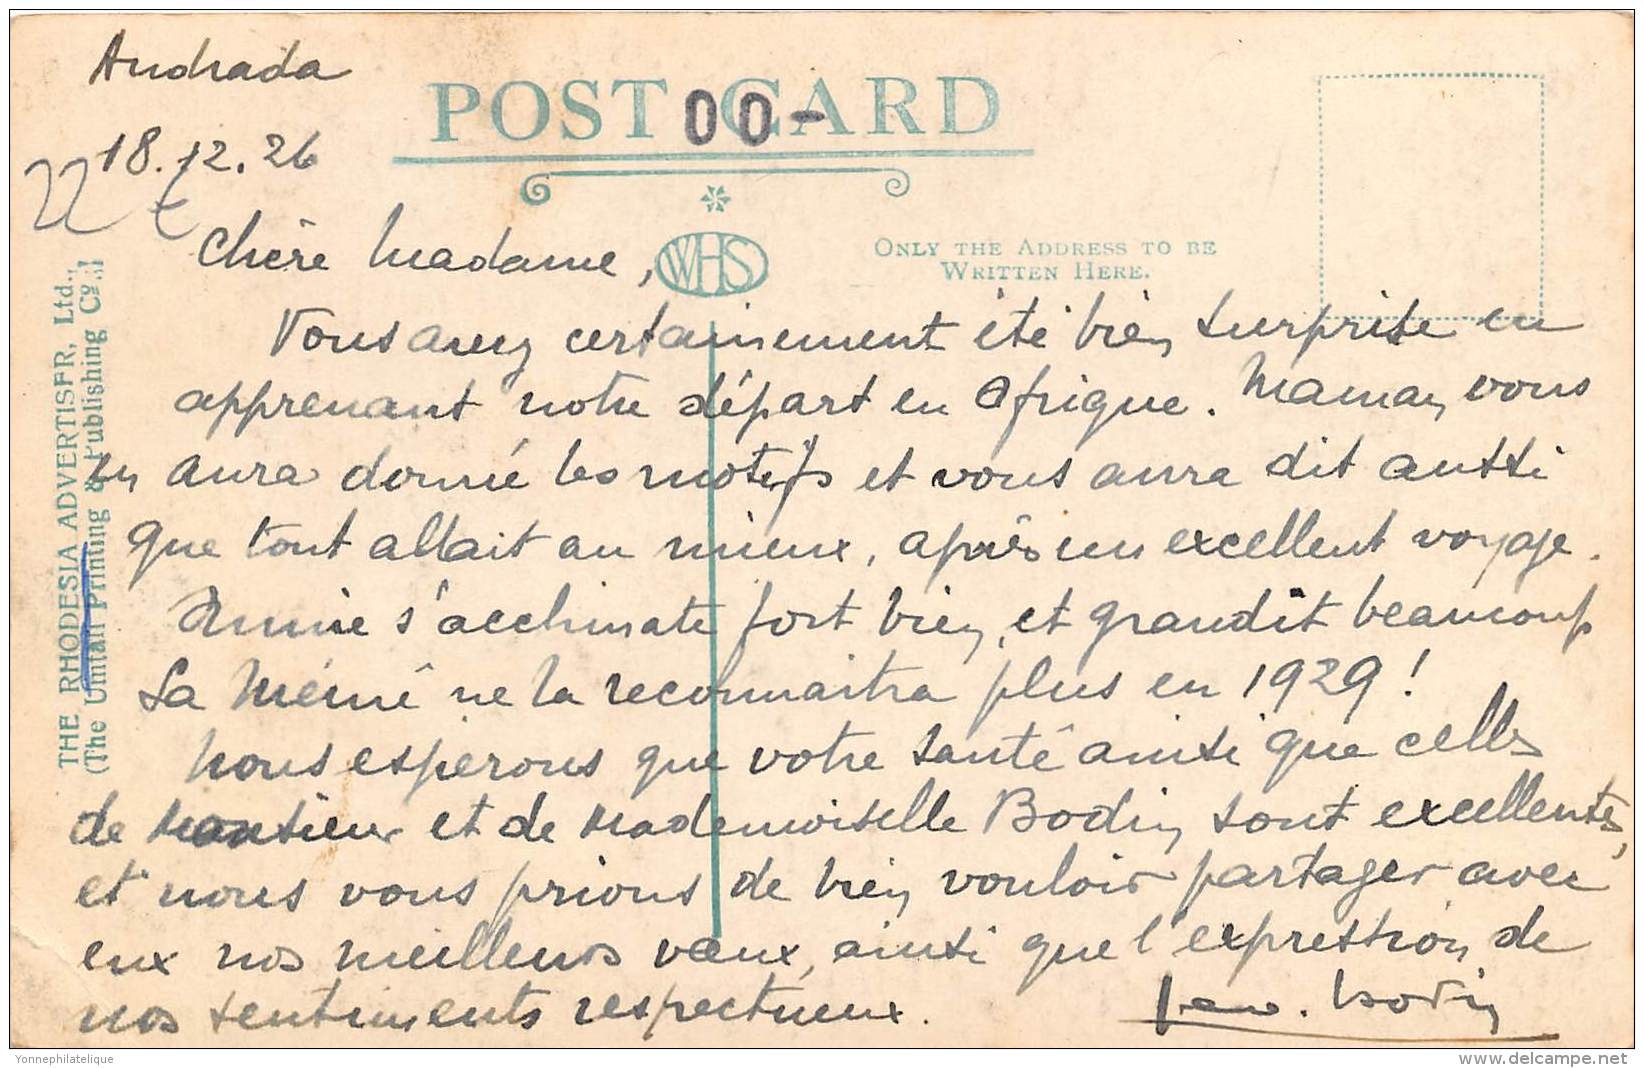 Andrada
POST CARD
00-
18.12.26
22
WHS
ONLY THE ADDRESS TO BE
WRITTEN HERE.
THE RHODESIA ADVERTISER, Ltd.,
(The Umtali Printing & Publishing Co.)
Chère Madame,
Vous avez certainement été bien surprise en
apprenant notre départ en Afrique. Maman vous
en aura donné les motifs et vous aura dit aussi
que tout allait au mieux, après un excellent voyage.
Annie s'acclimate fort bien, et grandit beaucoup
Sa Mémé ne la reconnaitra plus en 1929!
Nous esperons que votre santé ainsi que celles
de Monsieur et de Mademoiselle Bodin sont excellentes,
et nous vous prions de bien vouloir partager avec
eux nos meilleurs vœux, ainsi que l'expression de
nos sentiments respectueux.
Yonnephilatelique
delcampe.net